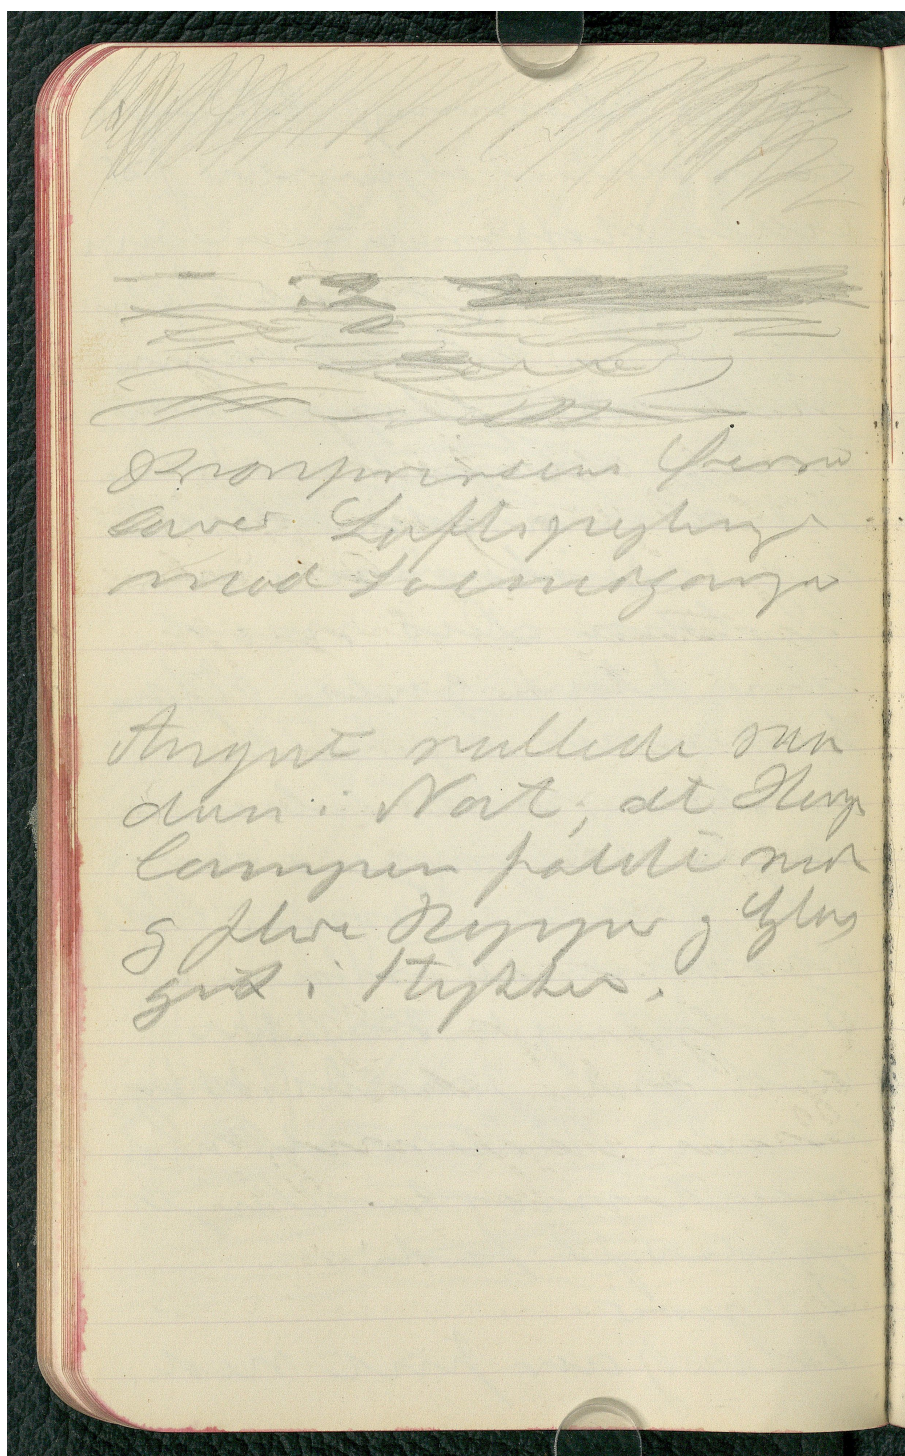 Kronprinsens Øerne
laver Luftspejlinger
mod Solnedgangen
Angut rullede saa
dan i Nat, at Hænge
lampen faldt ned
og flere Kopper og Glas
gik i Stykker.